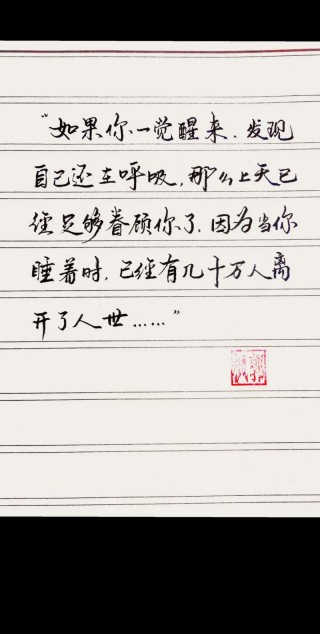 “如果你一觉醒来.发现
自己还在呼吸,那么上天已
经足够眷顾你了.因为当你
睡着时.已经有几十万人离
开了人世……”